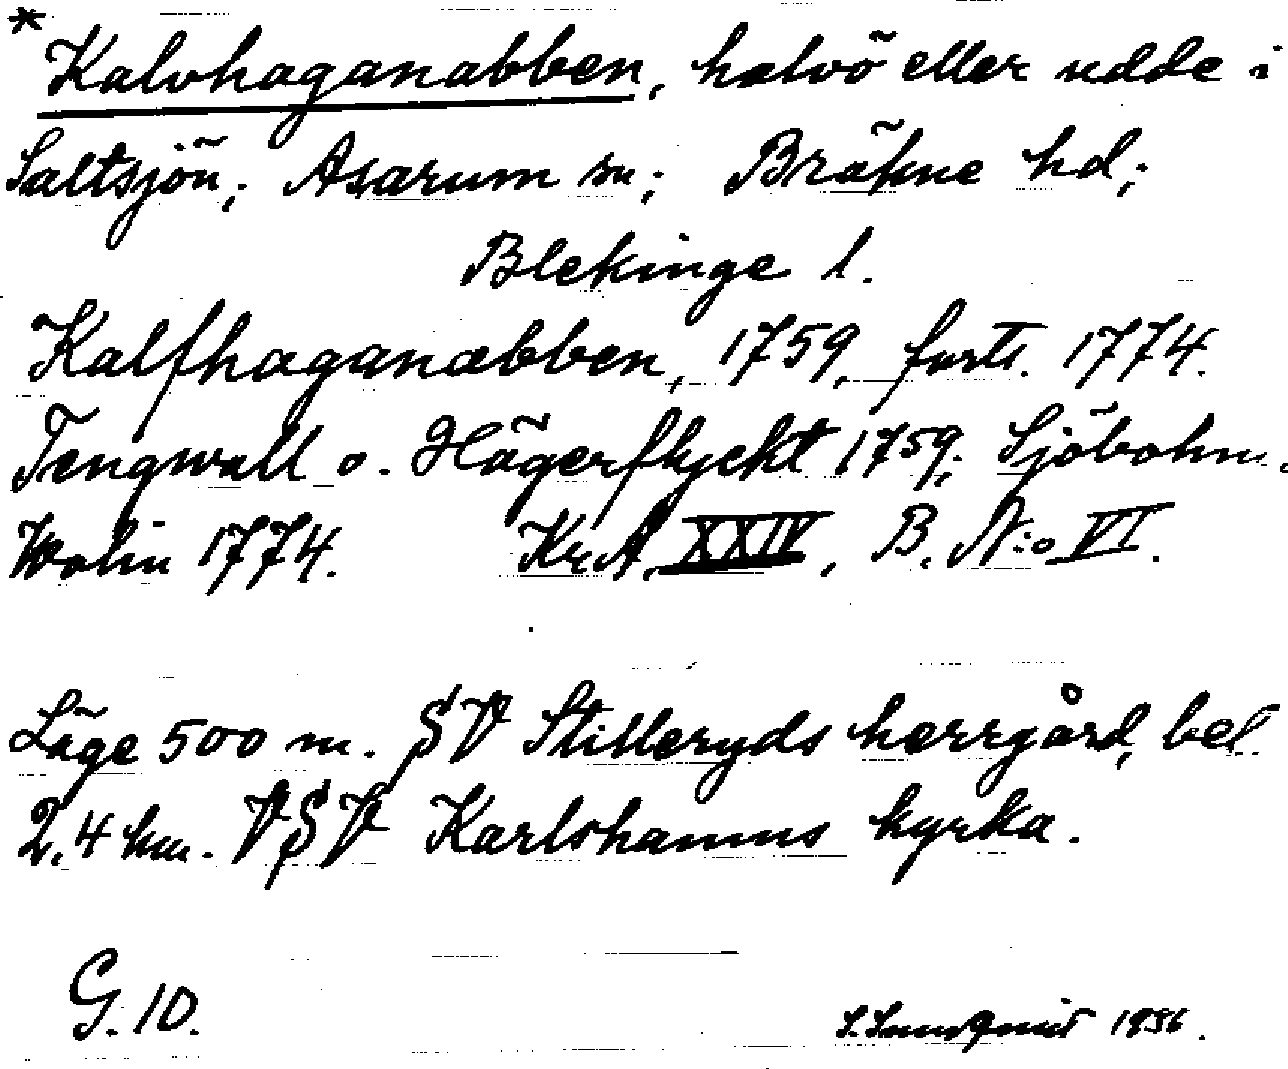 * Kalvhaganabben, halvö eller udde i
Saltsjön; Asarum sn; Bräkne hd;
Blekinge l.
Kalfhaganabben, 1759, forts. 1774.
Tengwall o. Hägerflyckt 1759; Sjöbohm.
Wolin 1774. Kr.A. XXIV, B. N:o VI.
Läge 500 m. SV Stilleryds herrgård, bel
2,4 km. VSV Karlshamns kyrka.
G. 10.
1936.